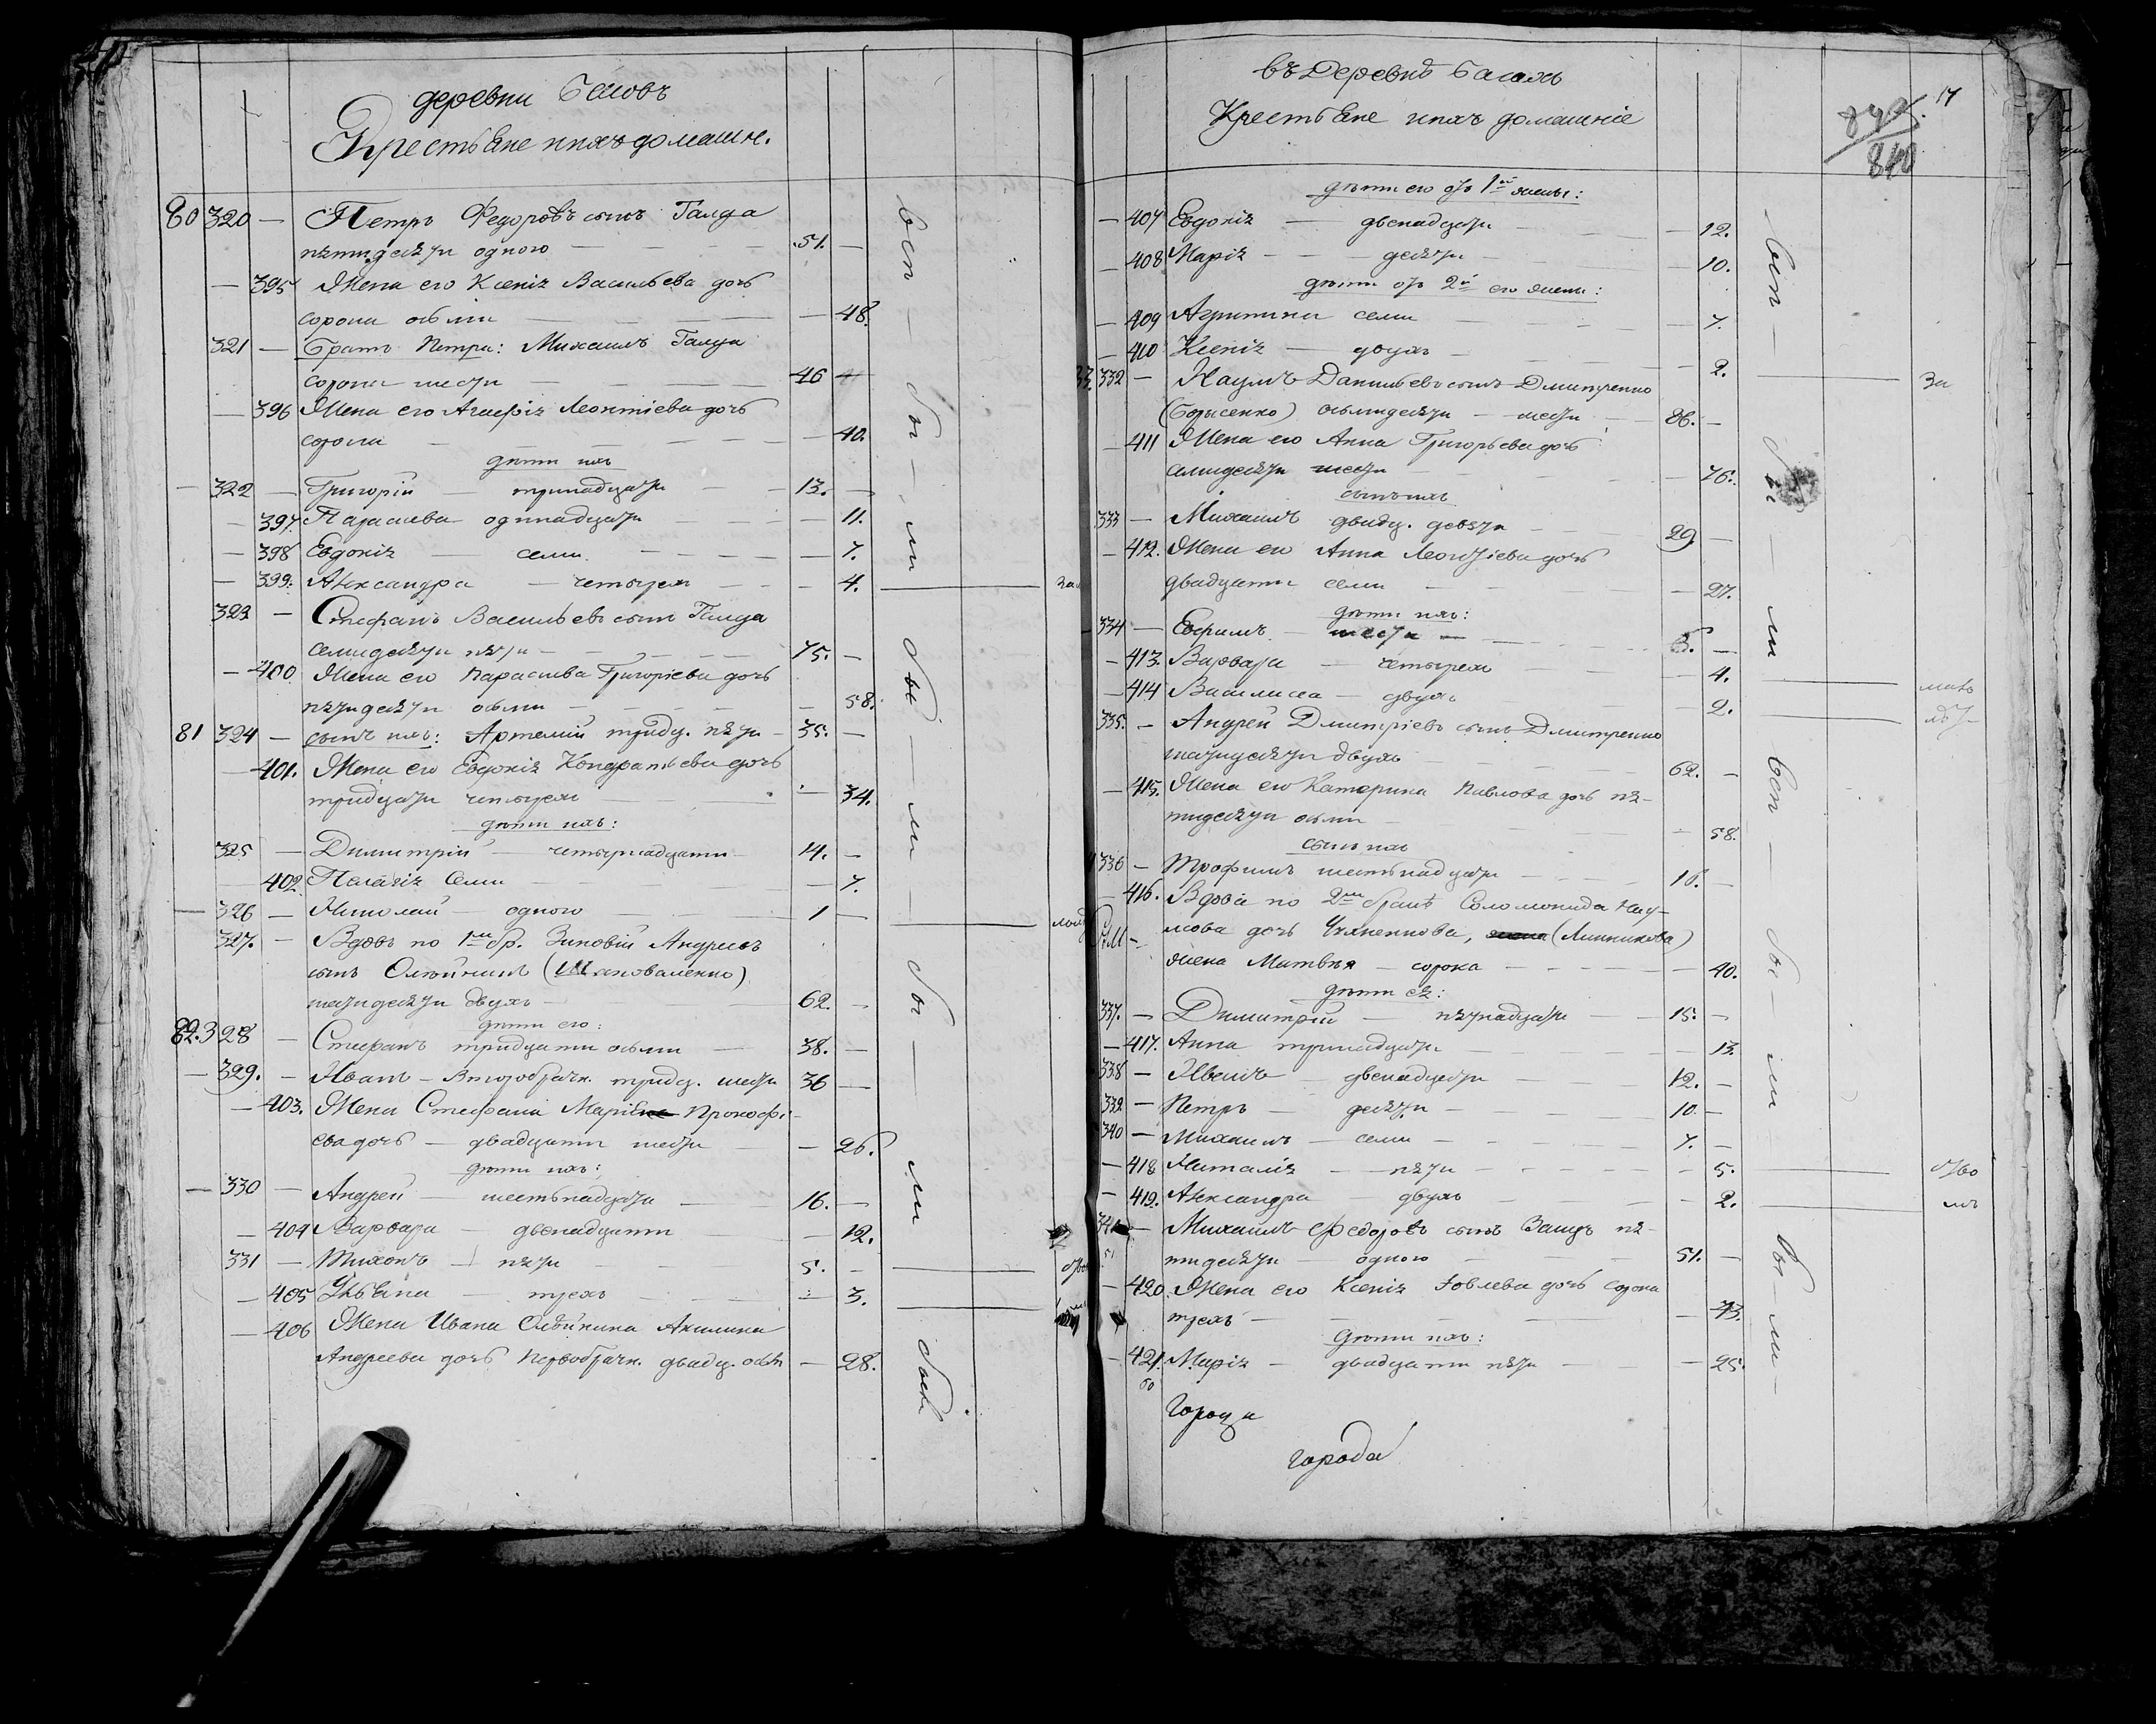 деревни Басовъ
Крестьяне ихъ домашн.
80 320 — Петръ Федоровъ сынъ Галда
пятидесяти одного — 51. —
— 395 Жена его Ксенія Васильева дочь
сорока осьми — 48.
321 — Братъ Петра: Михаилъ Галда
сорока шести — 46
— 396 Жена его Агафія Леонтіева дочь
сорока — 40.
дѣти ихъ
— 322 — Григорій — тринадцати — 13. —
— 397. Параскева одинадцати — 11.
— 398 Евдокія — семи — 7.
— 399. Александра — четырехъ — 4. — за
323 — Стефанъ Васильевъ сынъ Галда
семидесяти пяти — 75. —
— 400. Жена его Параскева Григоріева дочь
пятидесяти осьми — 58.
81 324 — сынъ ихъ: Артемій тридц. пяти — 35. —
— 401. Жена его Евдокія Кондратьева дочь
тридцати четырехъ — 34.
дѣти ихъ:
325 — Димитрій — четырнадцати — 14. —
402. Пелагія Семи — 7.
— 326 — Николай — одного — 1 —
327. — Вдовъ по 1мъ бр. Зиновій Андреевъ
сынъ Олейникъ (Шаповаленко)
шестидесяти двухъ — 62. —
дѣти его:
82. 328 — Стефанъ тридцати осьми — 38. —
— 329. — Иванъ — Второбрачн. тридц. шести 36 —
— 403. Жена Стефана Марія Прокофі-
ева дочь — двадцати шести — 26.
дѣти ихъ:
— 330 — Андрей — шестьнадцати — 16. —
— 404 Варвара — двенадцати — 12.
331 — Тихонъ — пяти — 5. —
— 405 Ульяна — трехъ — 3.
— 406 Жена Ивана Олейника Акилина
Андреева дочь Первобрачн. двадц. осьми — 28.
въ Деревнѣ Басахъ
Крестьяне ихъ домашніе
17
840
дѣти его отъ 1й жены:
— 407 Евдокія — двенадцати — 12.
— 408 Марія — десяти — 10.
дѣти отъ 2й его жены:
— 409 Агрипина семи — 7.
— 410 Ксенія — двухъ — 2. — за
332 — Наумъ Данильевъ сынъ Дмитренко
(Борисенко) осьмидесяти — шести — 86. —
— 411 Жена его Анна Григорьева дочь
семидесяти шести — 76.
сынъ ихъ
333 — Михаилъ двадц. девяти — 29. —
— 412. Жена его Анна Леонтіева дочь
двадцати семи — 27.
дѣти ихъ:
334 — Ефимъ — шести — 6. —
— 413. Варвара — четырехъ — 4.
— 414 Василиса — двухъ — 2.
335. — Андрей Дмитріевъ сынъ Дмитренко
шестидесяти двухъ — 62. —
— 415. Жена его Катерина Павлова дочь пя-
тидесяти осьми — 58.
сынъ ихъ
336 — Трофимъ шестьнадцати — 16. —
— 416. Вдова по 2мъ бракѣ Соломонида Нау-
мова дочь (Линникова)
жена Матвѣя — сорока — 40.
дѣти ея:
337. — Димитрій — пятнадцати — 15. —
— 417. Анна тринадцати — 13.
338 — Иванъ двенадцати — 12. —
339 — Петръ — десяти — 10. —
340 — Михаилъ — семи — 7. —
— 418 Наталія — пяти — 5.
— 419. Александра — двухъ — 2.
341 — Михаилъ Федоровъ сынъ Заецъ пя-
тидесяти — одного — 51. —
— 420. Жена его Ксенія Іовлева дочь сорока
трехъ — 43.
Дѣти ихъ:
— 421. Марія — двадцати пяти — 25.
Города
города